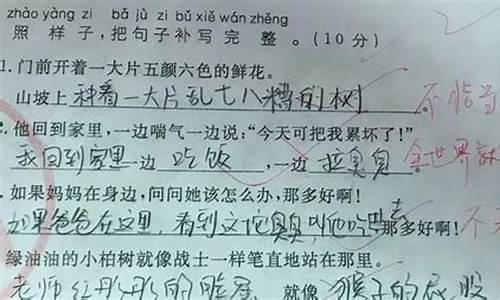 zhào yàng zi bǎ jù zi bǔ xiě wán zhěng
照样子,把句子补写完整。(10分)
1.门前开着一大片五颜六色的鲜花。
山坡上种着一大片乱七八糟的树
他回到家里,一边喘气一边说:“今天可把我累坏了!”
我回到家里一边吃饭,一边拉臭臭
.如果妈妈在身边,问问她该怎么办,那多好啊!
如果爸爸在这里,看到这坨臭臭叫他吃去那多好啊!
绿油油的小柏树就像战士一样笔直地站在那里。
老师红彤彤的脸 就像猴子的屁股